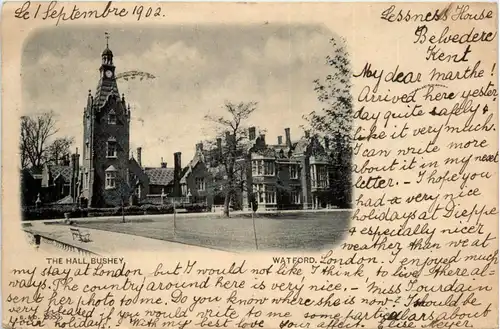 Le 1 Septembre 1902.
Lessness House
Belvedere
Kent
My dear Marthe!
Arrived here yester
day quite safely &
like it very much.
I can write more
about it in my next
letter. – I hope you
had a very nice
holidays at Dieppe
& especially nicer
weather than we at
THE HALL, BUSHEY
WATFORD.
London. I enjoyed much
my stay at London but I would not like I think to live there al-
ways. The country around here is very nice. – Miss Jourdain
sent her photo to me. Do you know where she is now? I should be
very pleased if you would write to me some particulars about
your holiday. With my best love your affect. Else